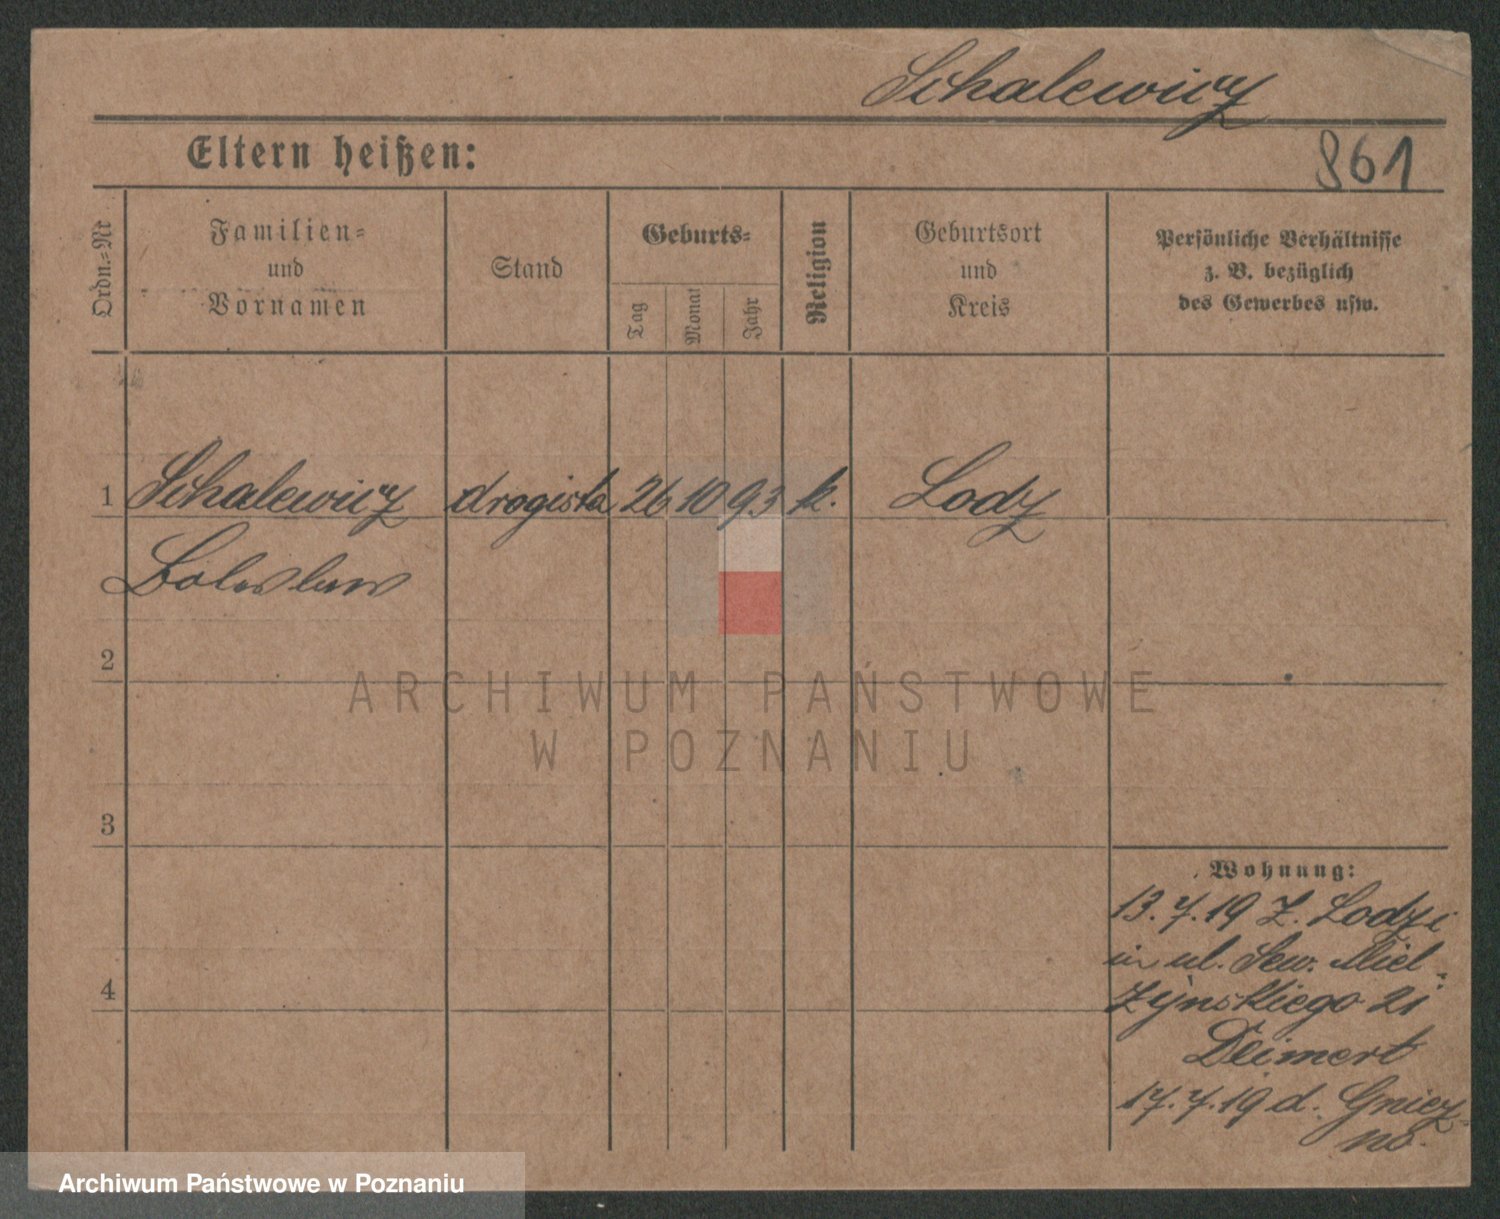 Schalewicz
Eltern heißen:
861
Ordn.=Nr
Familien=
und
Vornamen
Stand
Geburts=
Tag
Monat
Jahr
Religion
Geburtsort
und
Kreis
Persönliche Verhältnisse
z. B. bezüglich
des Gewerbes usw.
1 Schalewicz drogista 26 10 93 k. Lodz
Boleslaw
2
ARCHIWUM PAŃSTWOWE
W POZNANIU
3
Wohnung:
13.7.19 Z. Lodzi
ul. Sew. Miel
4
żynskiego 21
Deimert
17.7.19 d. Gniez
no.
Archiwum Państwowe w Poznaniu